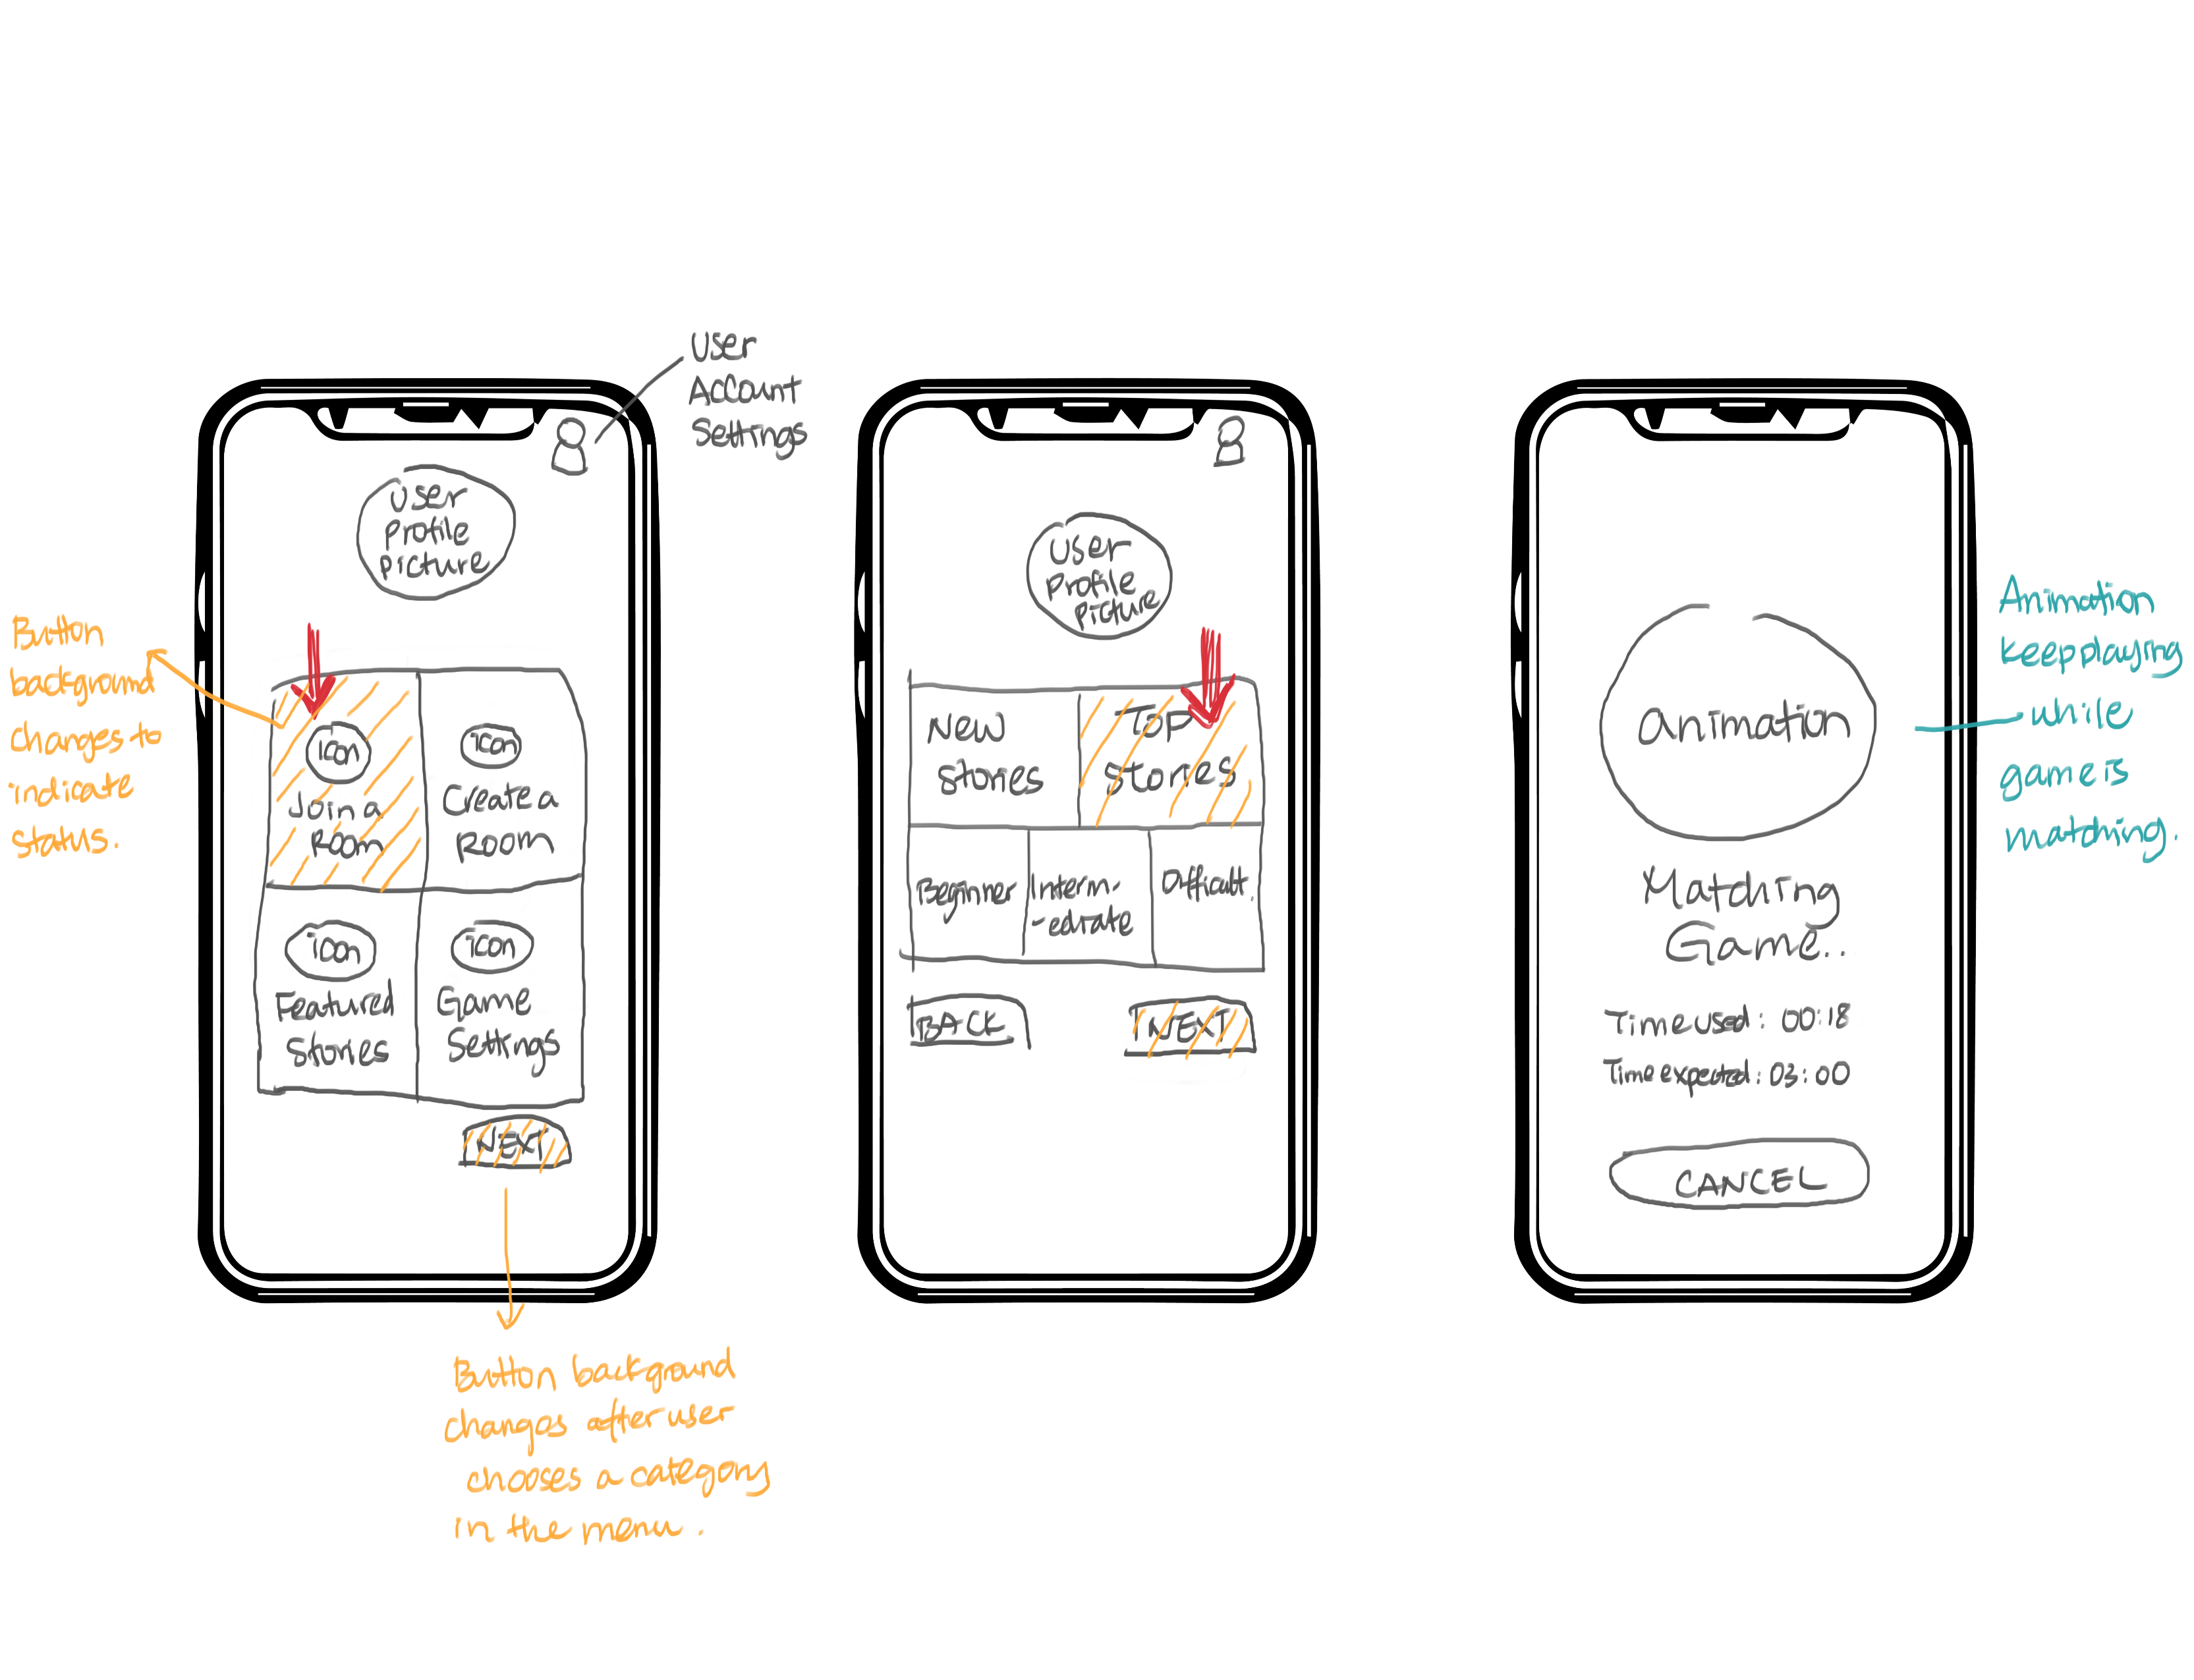 User
Account
Settings
User
Profile
Picture
Button
background
changes to
indicate
status.
icon
Join a
Room
icon
Create a
Room
icon
Featured
Stories
icon
Game
Settings
NEXT
Button backgound
changes after user
chooses a category
in the menu.
User
Profile
Picture
New
Stories
Top
Stories
Beginner
Interm-
-ediate
Difficult.
BACK
NEXT
Animation
Matching
Game..
Time used: 00:18
Time expected: 03:00
CANCEL
Animation
keep playing
while
game is
matching.